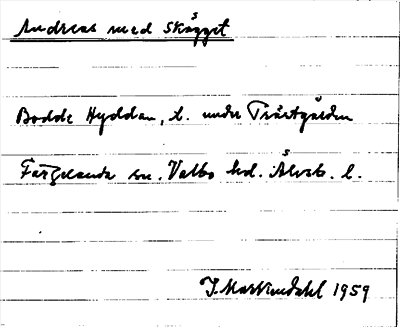 Andreas med Skägget
Bodde Hyddan, l. under Prästgården
Färgelanda sn. Valbo hd. Älvsb. l.
J. 1959